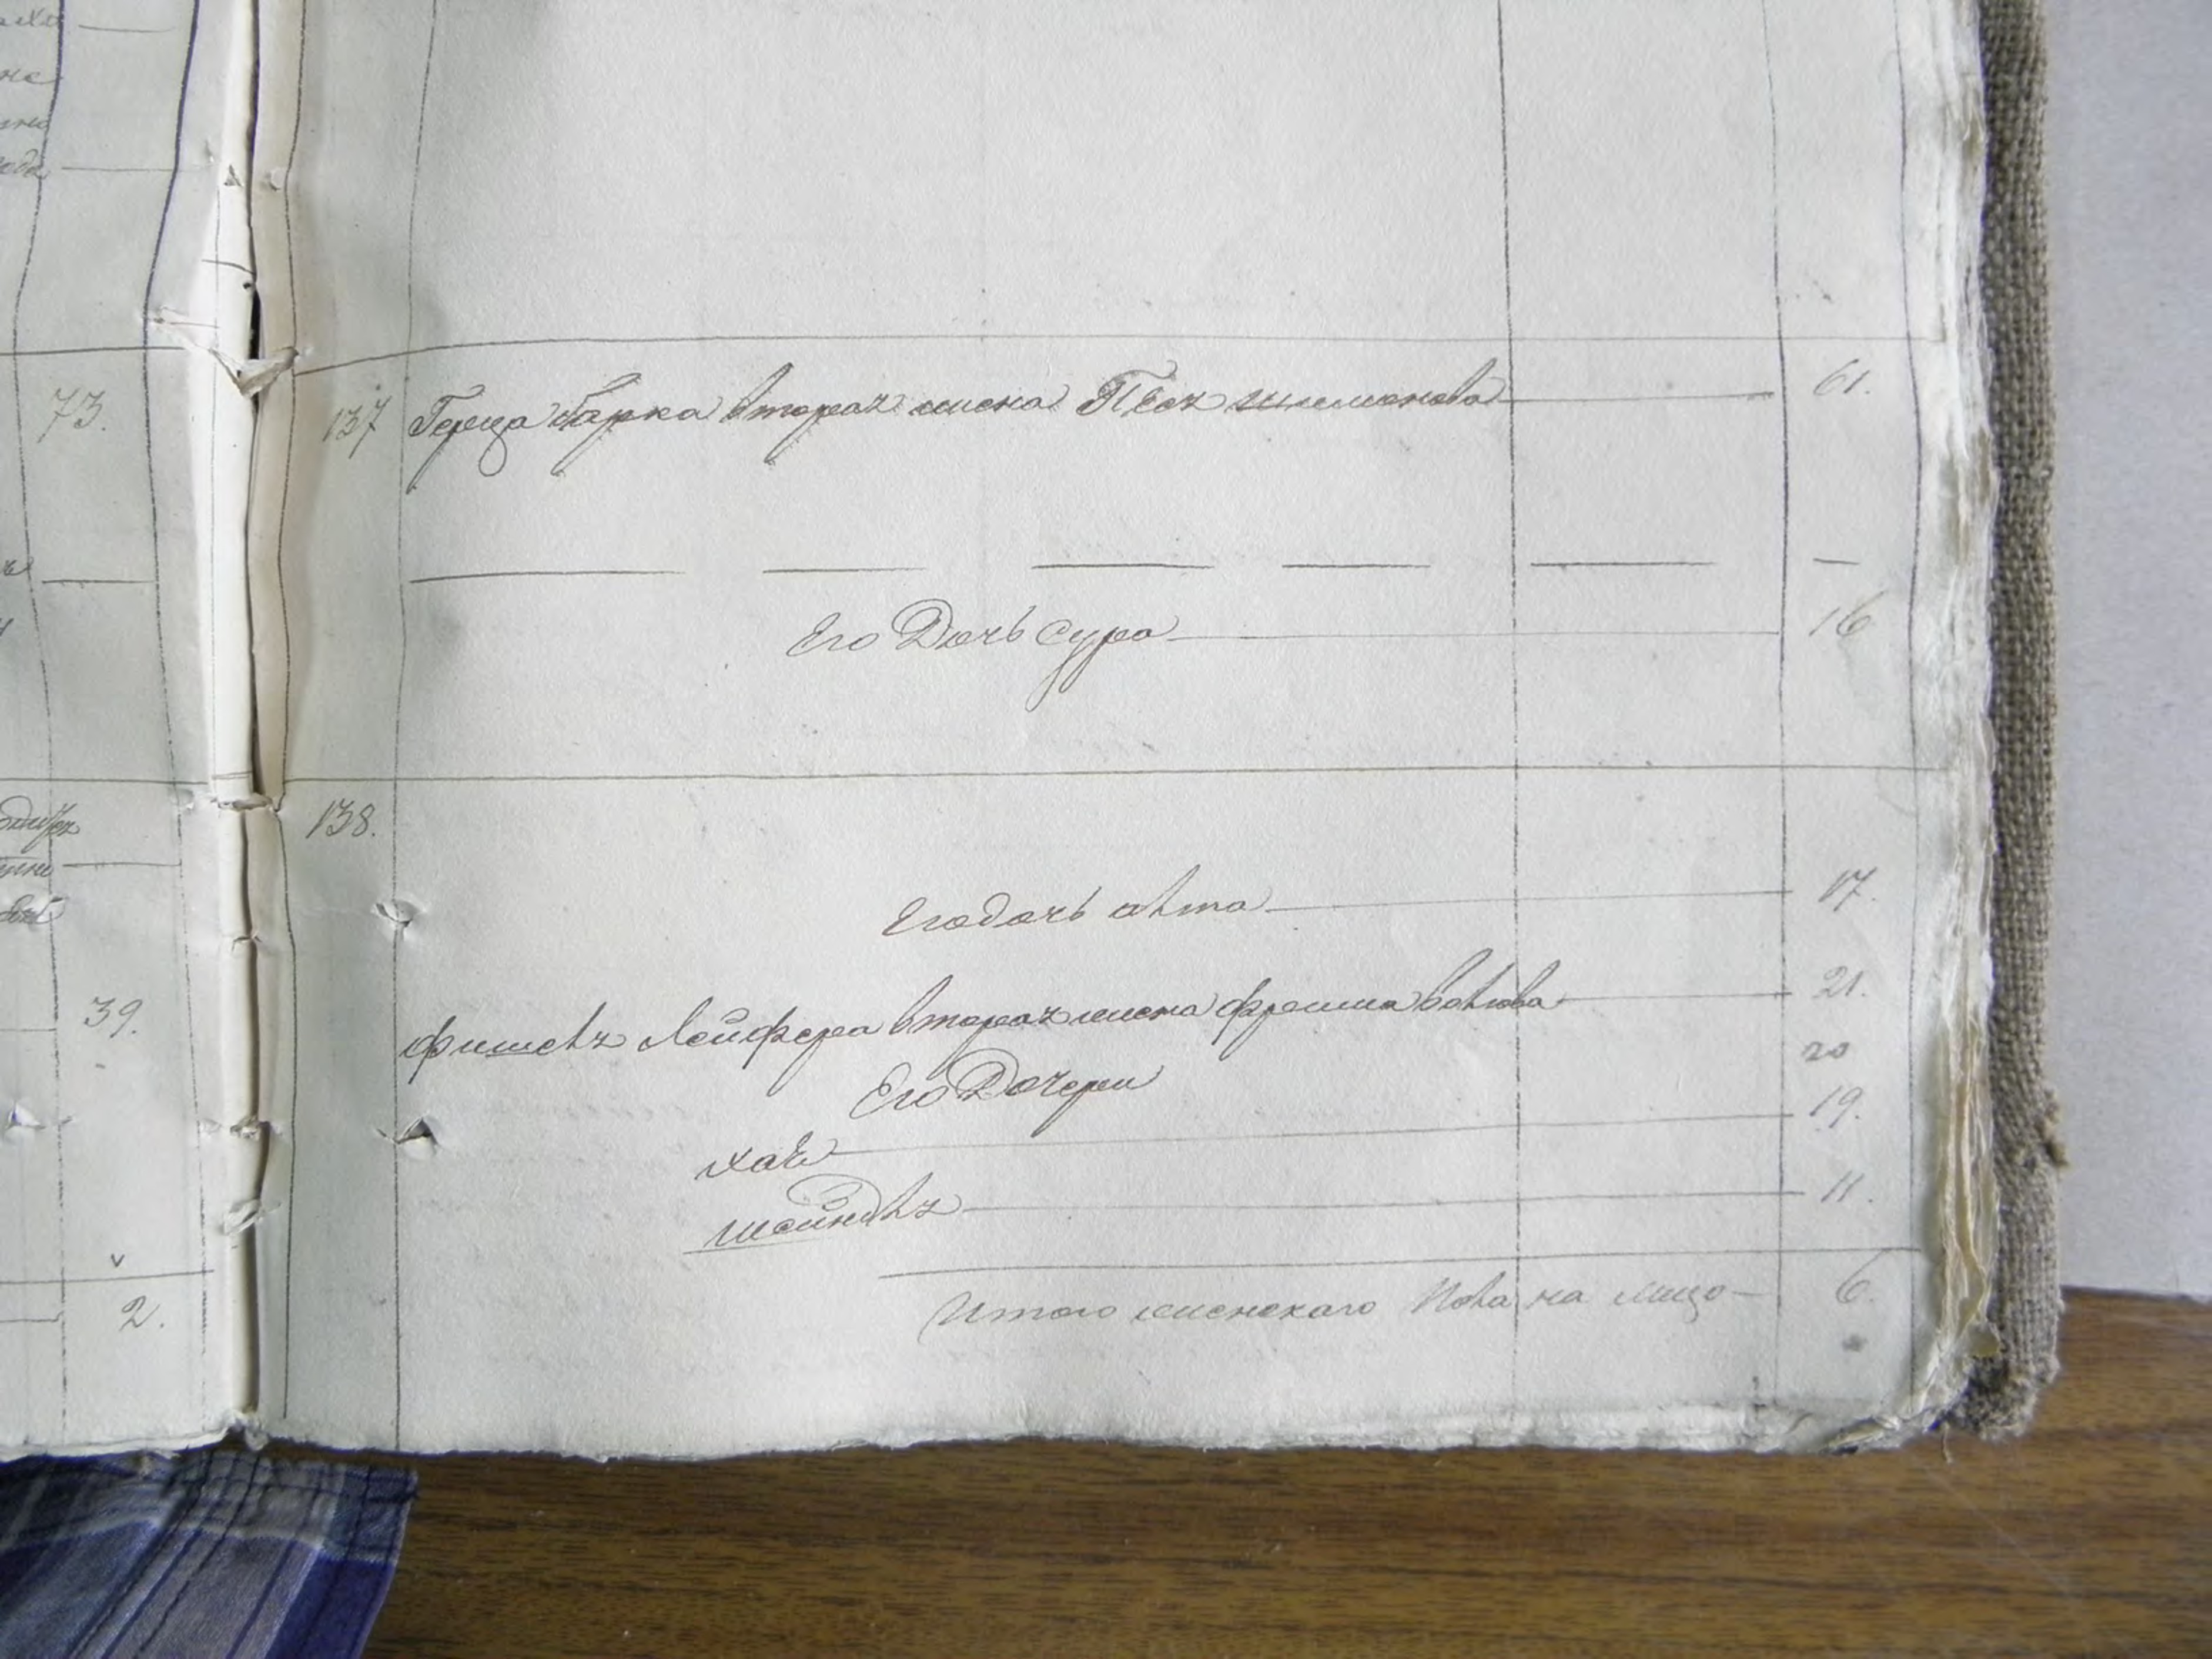 73.
39.
2.
137 Герща барка вторая жена Песя шимонова 61.
Его Дочь Сура 16
138.
Его дочь алта 17.
фишель Лейфера вторая жена фрейма волкова 21.
20
Его Дочери
хая 19.
шейндль 11.
Итого женскаго Пола на лицо 6.